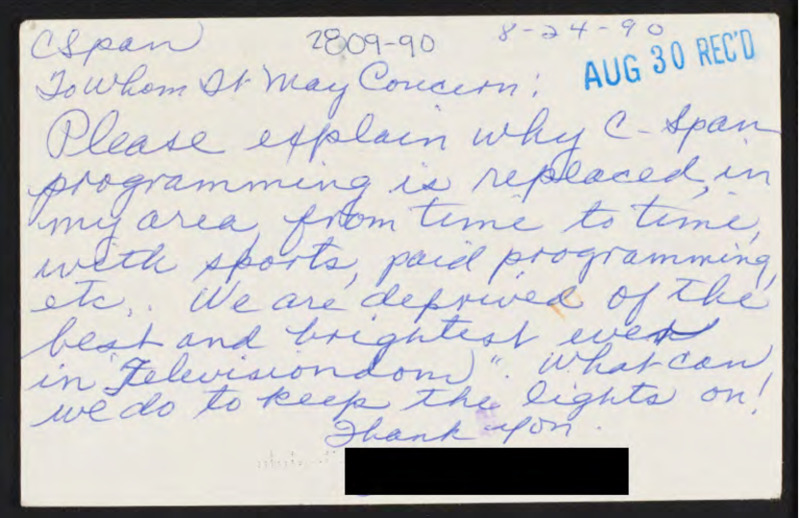 CSpan 2809-90 8-24-90
AUG 30 REC'D
To Whom It May Concern:
Please explain why C-Span
programming is replaced, in
my area, from time to time,
with sports, paid programming,
etc,. We are deprived of the
best and brightest ever
in "Televisiondom". What can
we do to keep the lights on!
Thank you.